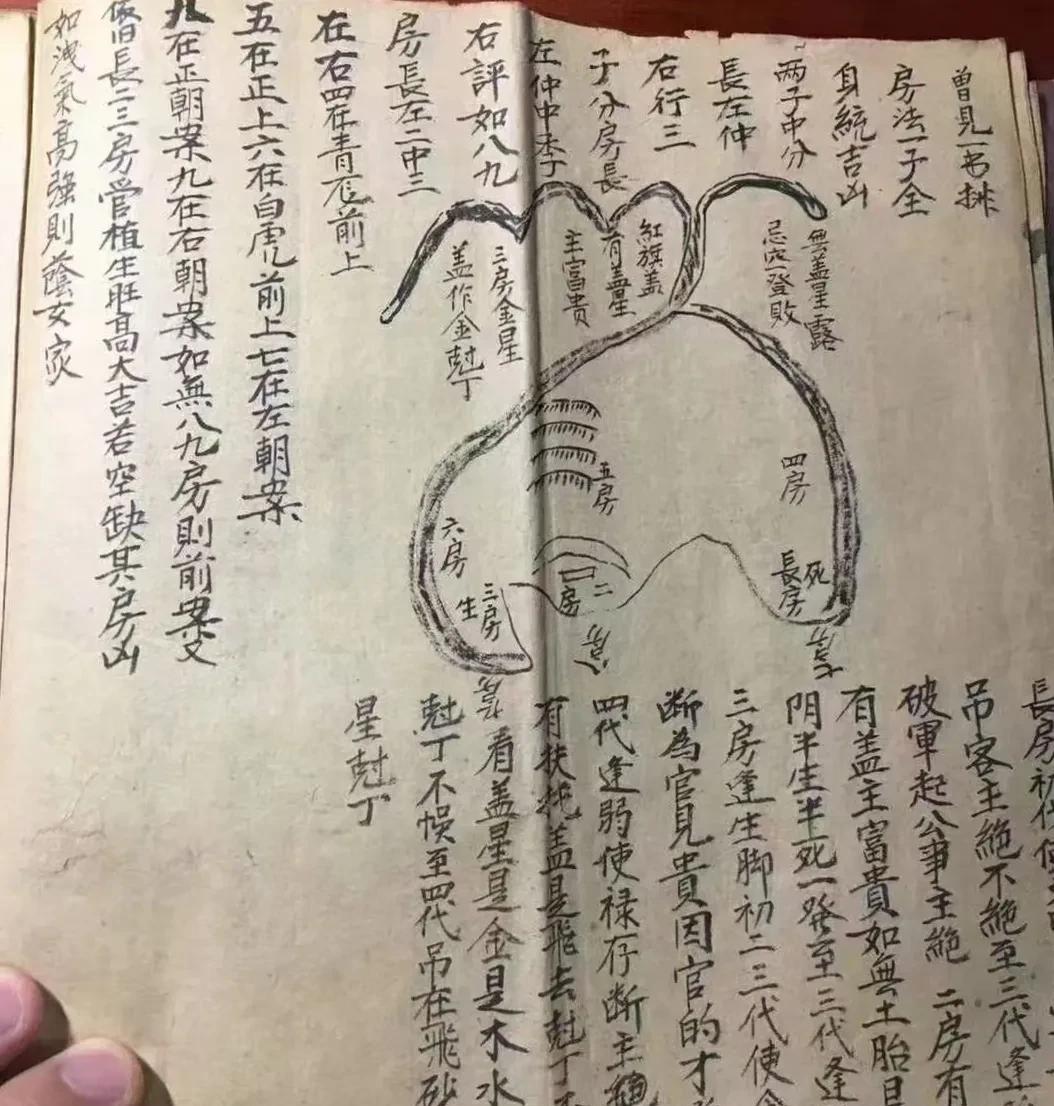 曽見一書排
房法一子全
身統吉凶
两子中分
長左仲
右行三
子分房長
左仲中季
右評如八九
房長左二中三
在右四在青辰前上
五在正上六在白虎前上七在左朝案
八在正朝案九在右朝案如無八九房則前案又
依旧長二三房管植生旺高大吉若空缺其房凶
如洩氣高強則蔭女家
無盖星露
忌空一登敗
紅旗盖
有盖星
主富貴
三房金星
盖作金尅丁
四房
五房
六房
死
長房
二房
三房
生
七房
八房
九房
長房初代使
吊客主絶不絶至三代逢
破軍起公事主絶 二房有
有盖主富貴如無土胎
阴半生半死一發至三代逢
三房逢生脚初二三代使
断為官見貴因官的才
四代逢弱使禄存断主絕
有扶托盖是飛去尅丁
看盖星是金是木水
尅丁不惧至四代吊在飛砂
星尅丁